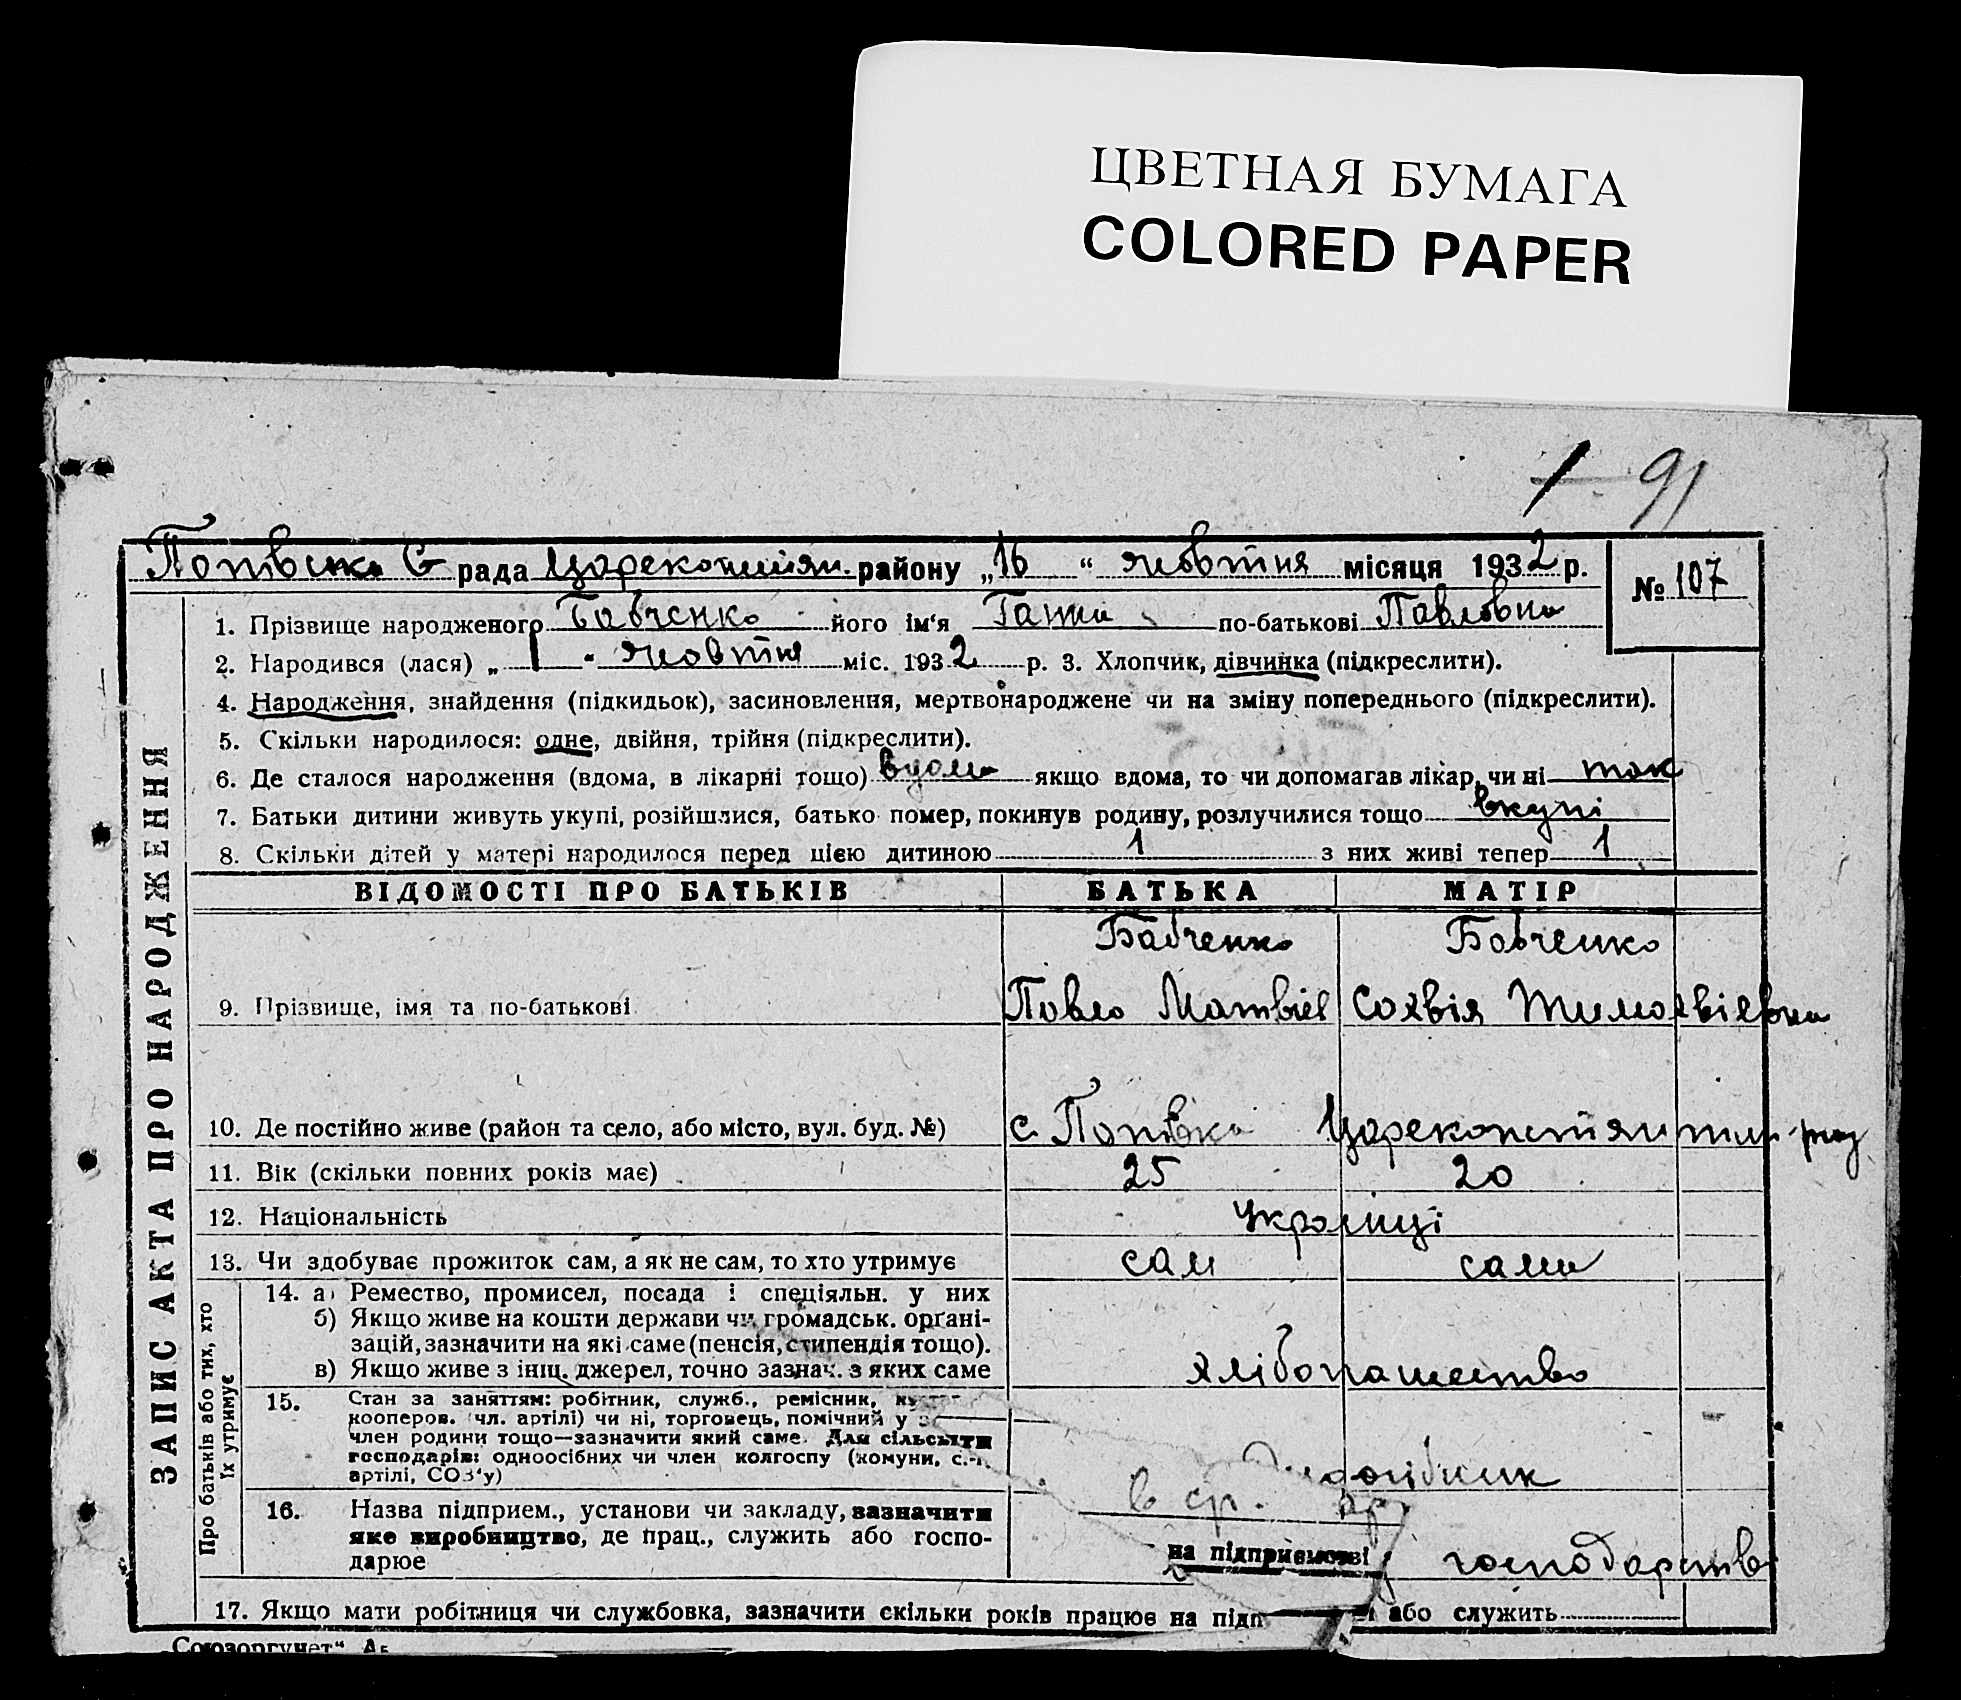 ЦВЕТНАЯ БУМАГА
COLORED PAPER
1 91
Попівська С рада Царекопстян. району „16 “ жовтня місяця 1932 р. № 107
1. Прізвище народженого Бабченко його ім'я Гатя по-батькові Павловна
2. Народився (лася) „ 1 “ жовтня міс. 1932 р. 3. Хлопчик, дівчинка (підкреслити).
4. Народження, знайдення (підкидьок), засиновлення, мертвонароджене чи на зміну попереднього (підкреслити).
5. Скільки народилося: одне, двійня, трійня (підкреслити).
6. Де сталося народження (вдома, в лікарні тощо) вдома якщо вдома, то чи допомагав лікар, чи ні так
7. Батьки дитини живуть укупі, розійшлися, батько помер, покинув родину, розлучилися тощо вкупі
8. Скільки дітей у матері народилося перед цією дитиною 1 з них живі тепер 1
ЗАПИС АКТА ПРО НАРОДЖЕННЯ
ВІДОМОСТІ ПРО БАТЬКІВ БАТЬКА МАТІР
Бабченко Бабченко
9. Прізвище, імя та по-батькові Павло Матвієв Сохвія Тимохвієвна
10. Де постійно живе (район та село, або місто, вул. буд. №) с. Попівка
11. Вік (скільки повних років має) 25 20
12. Національність Українці
13. Чи здобуває прожиток сам, а як не сам, то хто утримує сам сама
Про батьків або тих, хто
їх утримує
14. а) Ремество, промисел, посада і спеціяльн. у них
б) Якщо живе на кошти держави чи громадськ. орґані-
зацій, зазначити на які саме (пенсія, стипендія тощо).
в) Якщо живе з інш. джерел, точно зазнач. з яких саме хлібопашество
15. Стан за заняттям: робітник, служб., ремісник,
кооперов. (чл. артілі) чи ні, торговець, помічний у
член родини тощо—зазначити який саме. Для сільських
господарів: одноосібних чи член колгоспу (комуни, с.-г.
артілі, СОЗ'у)
16. Назва підприєм., установи чи закладу, вазначити
яке виробництво, де прац., служить або госпо-
дарюе
в ср.
на підприємстві господарстві
17. Якщо мати робітниця чи службовка, зазначити скільки років працює на підп або служить
„Союзоргучет“